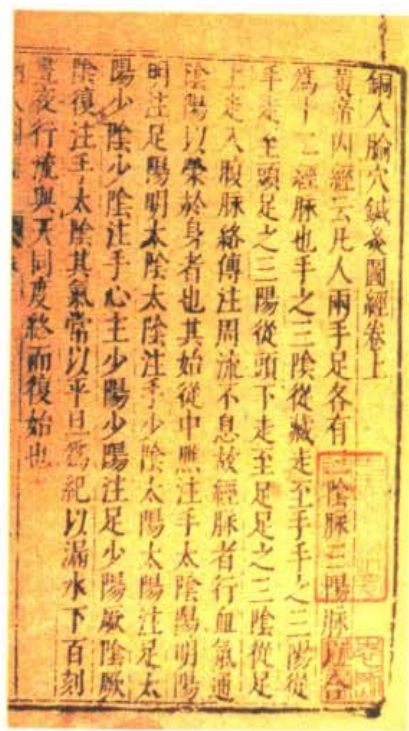 銅人腧穴鍼灸圖經卷上
黃帝內經云凡人兩手足各有三陰脉三陽脉以合
爲十二經脉也手之三陰從藏走至手手之三陽從
手走至頭足之三陽從頭下走至足足之三陰從足
上走入腹脉絡傳注周流不息故經脉者行血氣通
陰陽以榮於身者也其始從中焦注手太陰陽明陽
明注足陽明太陰太陰注手少陰太陽太陽注足太
陽少陰少陰注手心主少陽少陽注足少陽厥陰厥
陰復注手太陰其氣常以平旦爲紀以漏水下百刻
晝夜行流與天同度終而復始也